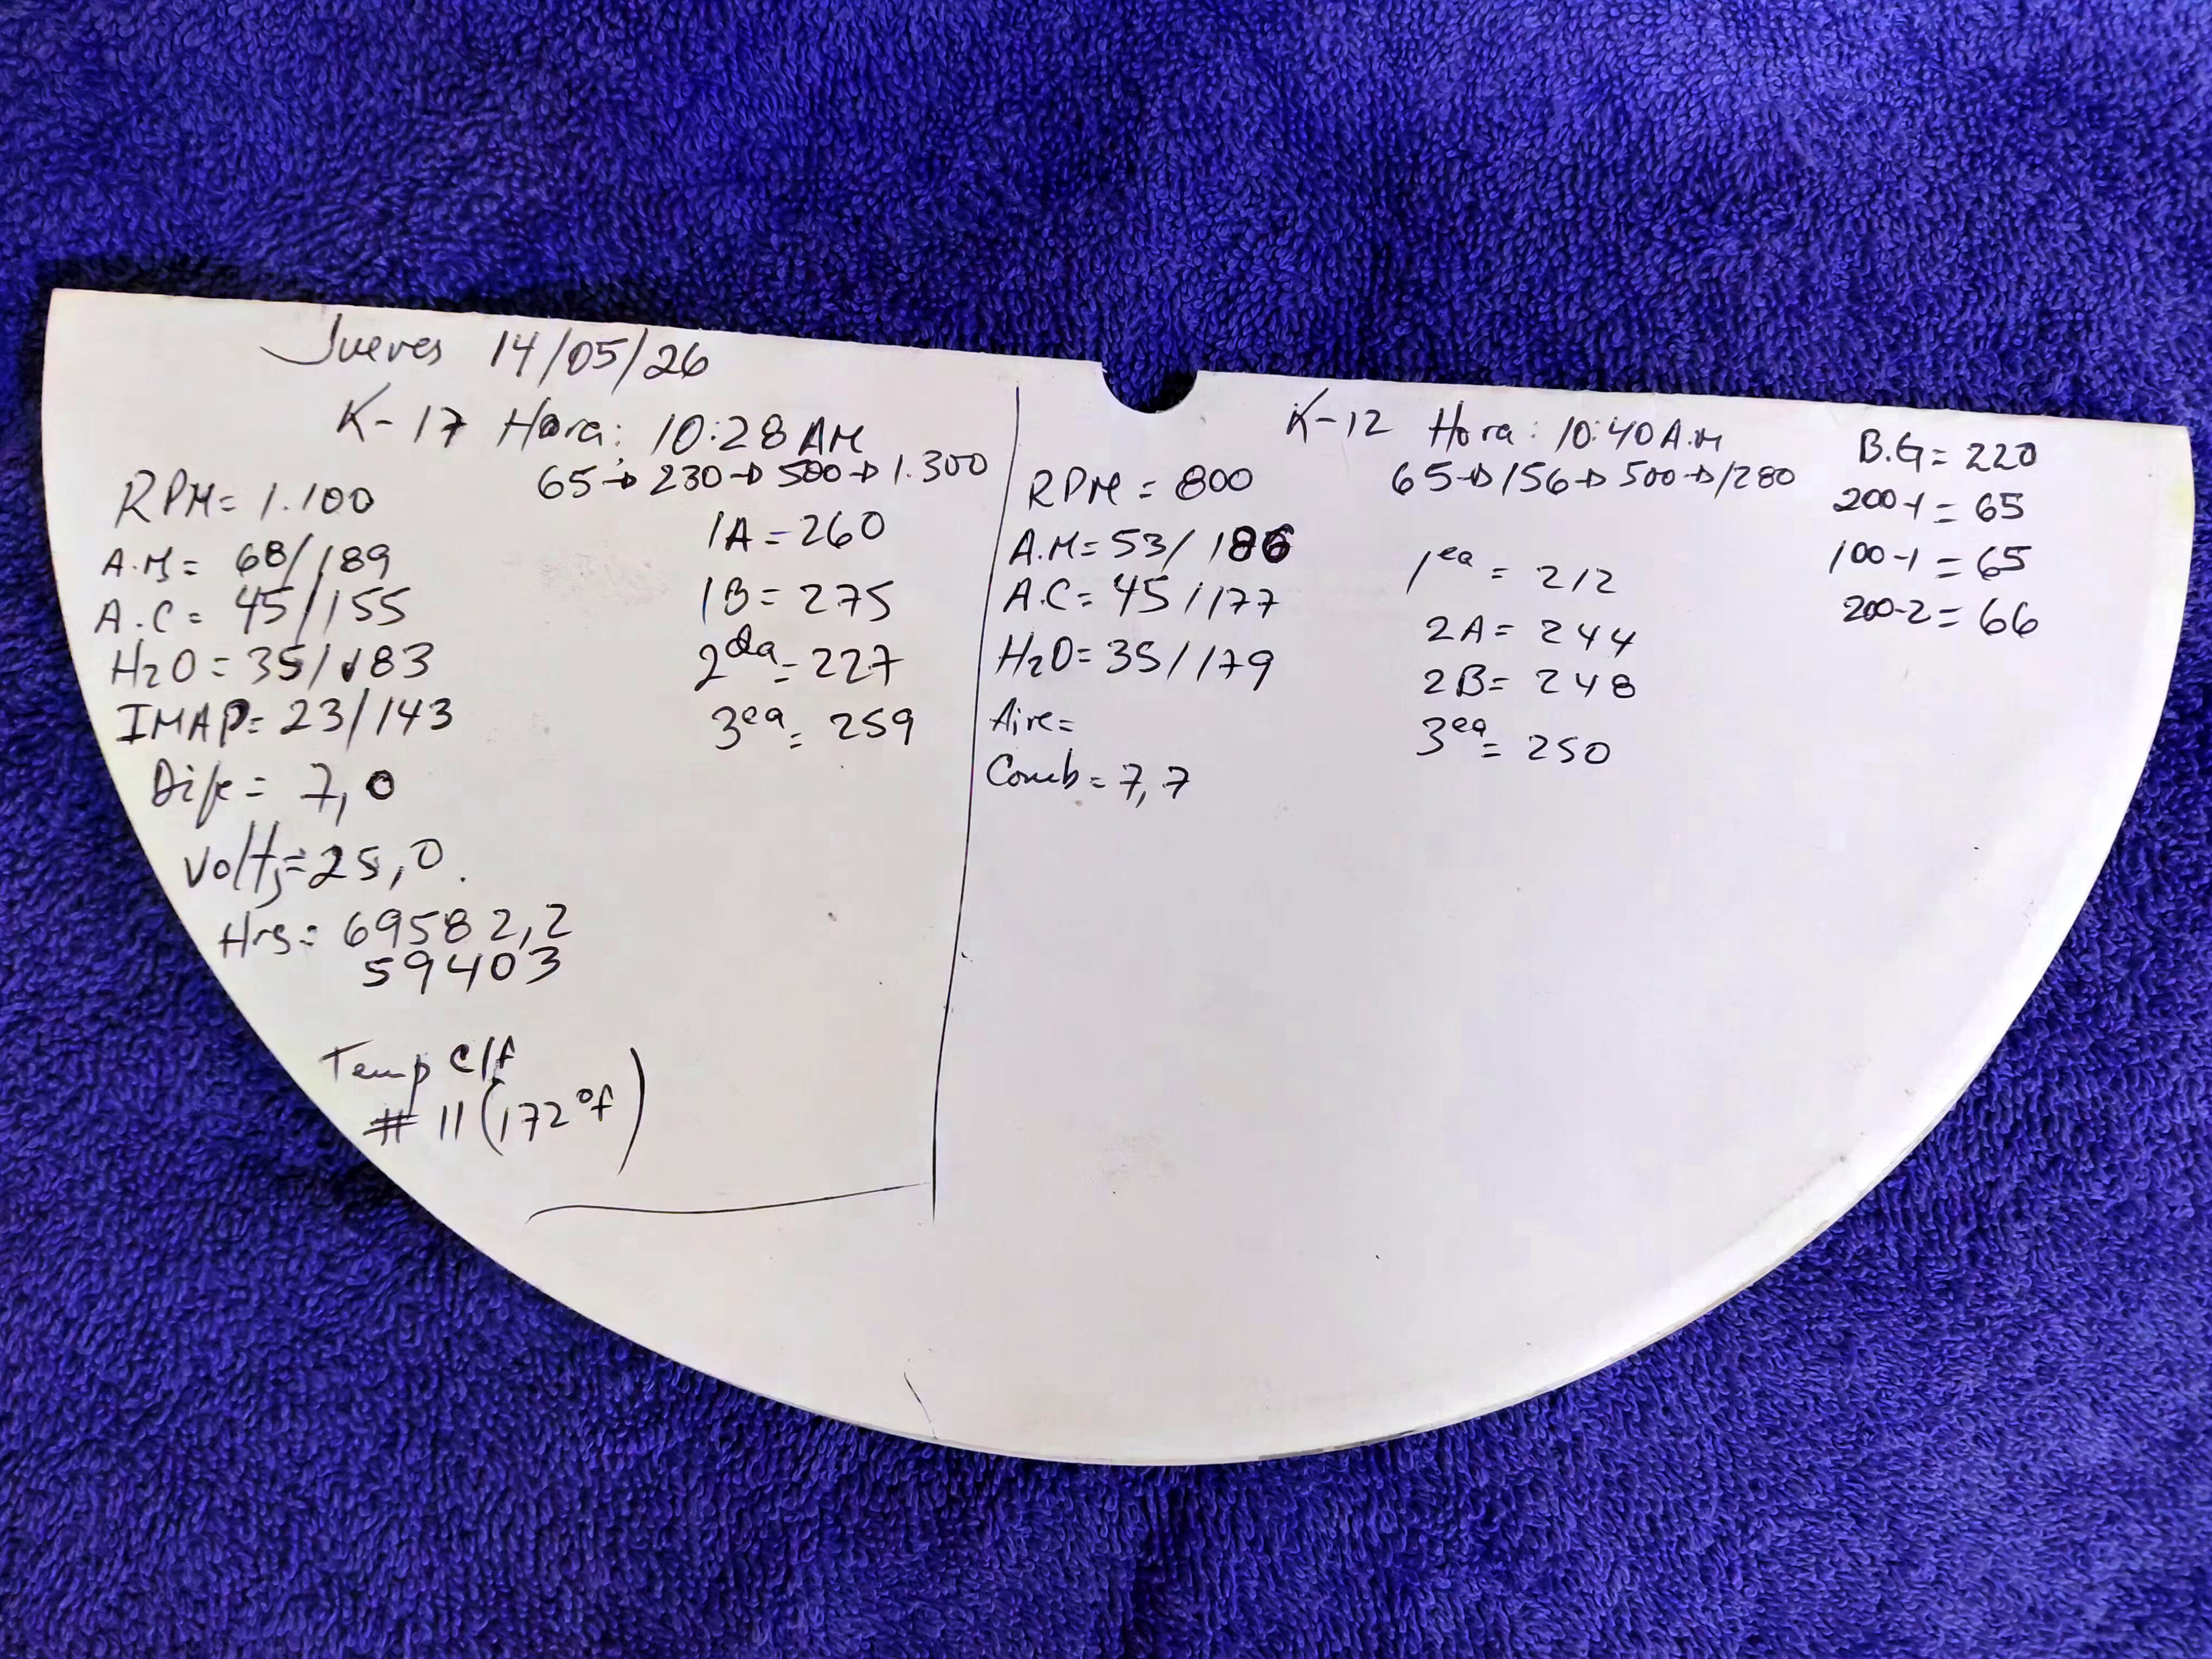 Jueves 14/05/26
K-17 Hora: 10:28 AM
65→230→500→1.300
RPM= 1.100
A.M= 68/189
A.C= 45/155
H2O= 35/183
IMAP= 23/143
Dife= 7,0
Volts=25,0.
Hrs= 69582,2
59403
1A=260
1B=275
2da=227
3ea=259
Temp c/f
# 11(172°f)
K-12 Hora: 10:40 A.M
65→156→500→1280
RPM= 800
A.M=53/186
A.C=45/177
H2O=35/179
Aire=
Comb=7,7
1ea=212
2A=244
2B=248
3ea=250
B.G=220
200-1=65
100-1=65
200-2=66